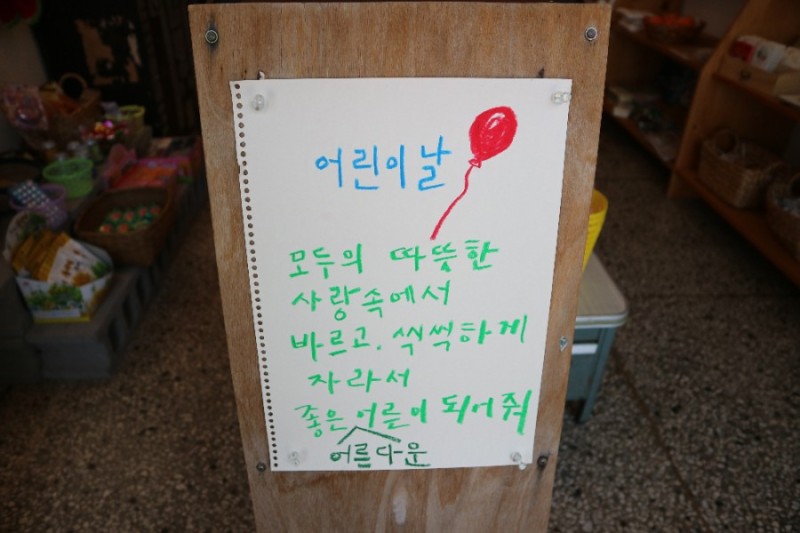 어린이날
모두의 따뜻한
사랑속에서
바르고, 씩씩하게
자라서
좋은 어른이 되어줘
어른다운